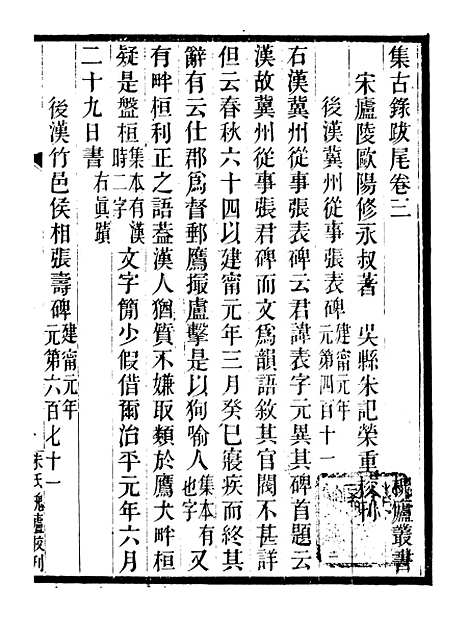 集古錄跋尾卷三
宋廬陵歐陽修永叔著　吳縣朱記榮重校刊
槐廬叢書
後漢冀州從事張表碑建甯元年元第四百十一
右漢冀州從事張表碑云君諱表字元異其碑首題云
漢故冀州從事張君碑而文爲韻語敘其官閥不甚詳
但云春秋六十四以建甯元年三月癸巳寑疾而終其
辭有云仕郡爲督郵鷹撮盧擊是以狗喻人集本有也字又
有畔桓利正之語葢漢人猶質不嫌取類於鷹犬畔桓
疑是盤桓集本有漢時二字文字簡少假借爾治平元年六月
二十九日書右眞蹟
後漢竹邑侯相張壽碑建甯元年元第六百七十一
朱氏槐廬校刊